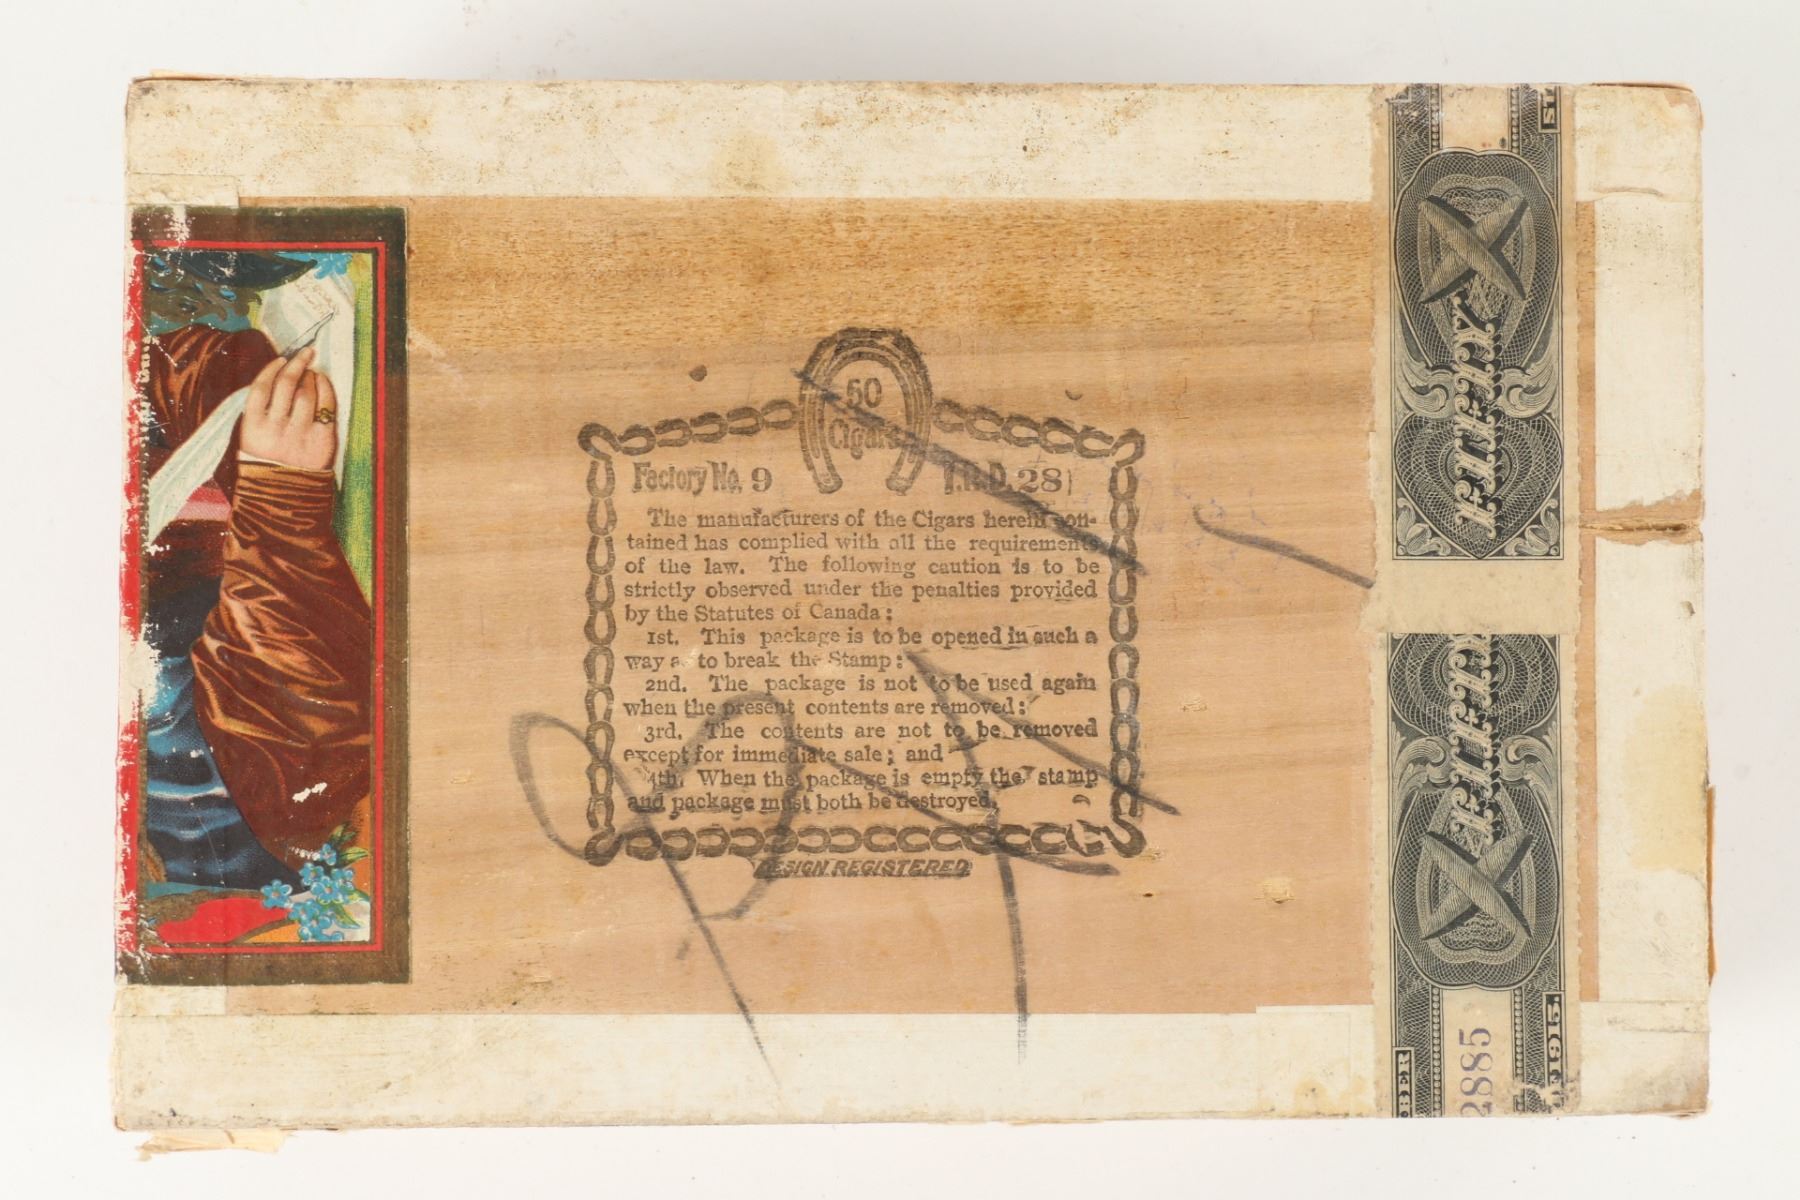 50
Cigars
Factory No. 9 I.R.D. 28
The manufacturers of the Cigars herein con-
tained has complied with all the requirements
of the law. The following caution is to be
strictly observed under the penalties provided
by the Statutes of Canada:
1st. This package is to be opened in such a
way as to break the Stamp:
2nd. The package is not to be used again
when the present contents are removed:
3rd. The contents are not to be removed
except for immediate sale; and
4th. When the package is empty the stamp
and package must both be destroyed.
DESIGN REGISTERED
FIFTY
FIFTY
2885
OF 1915.